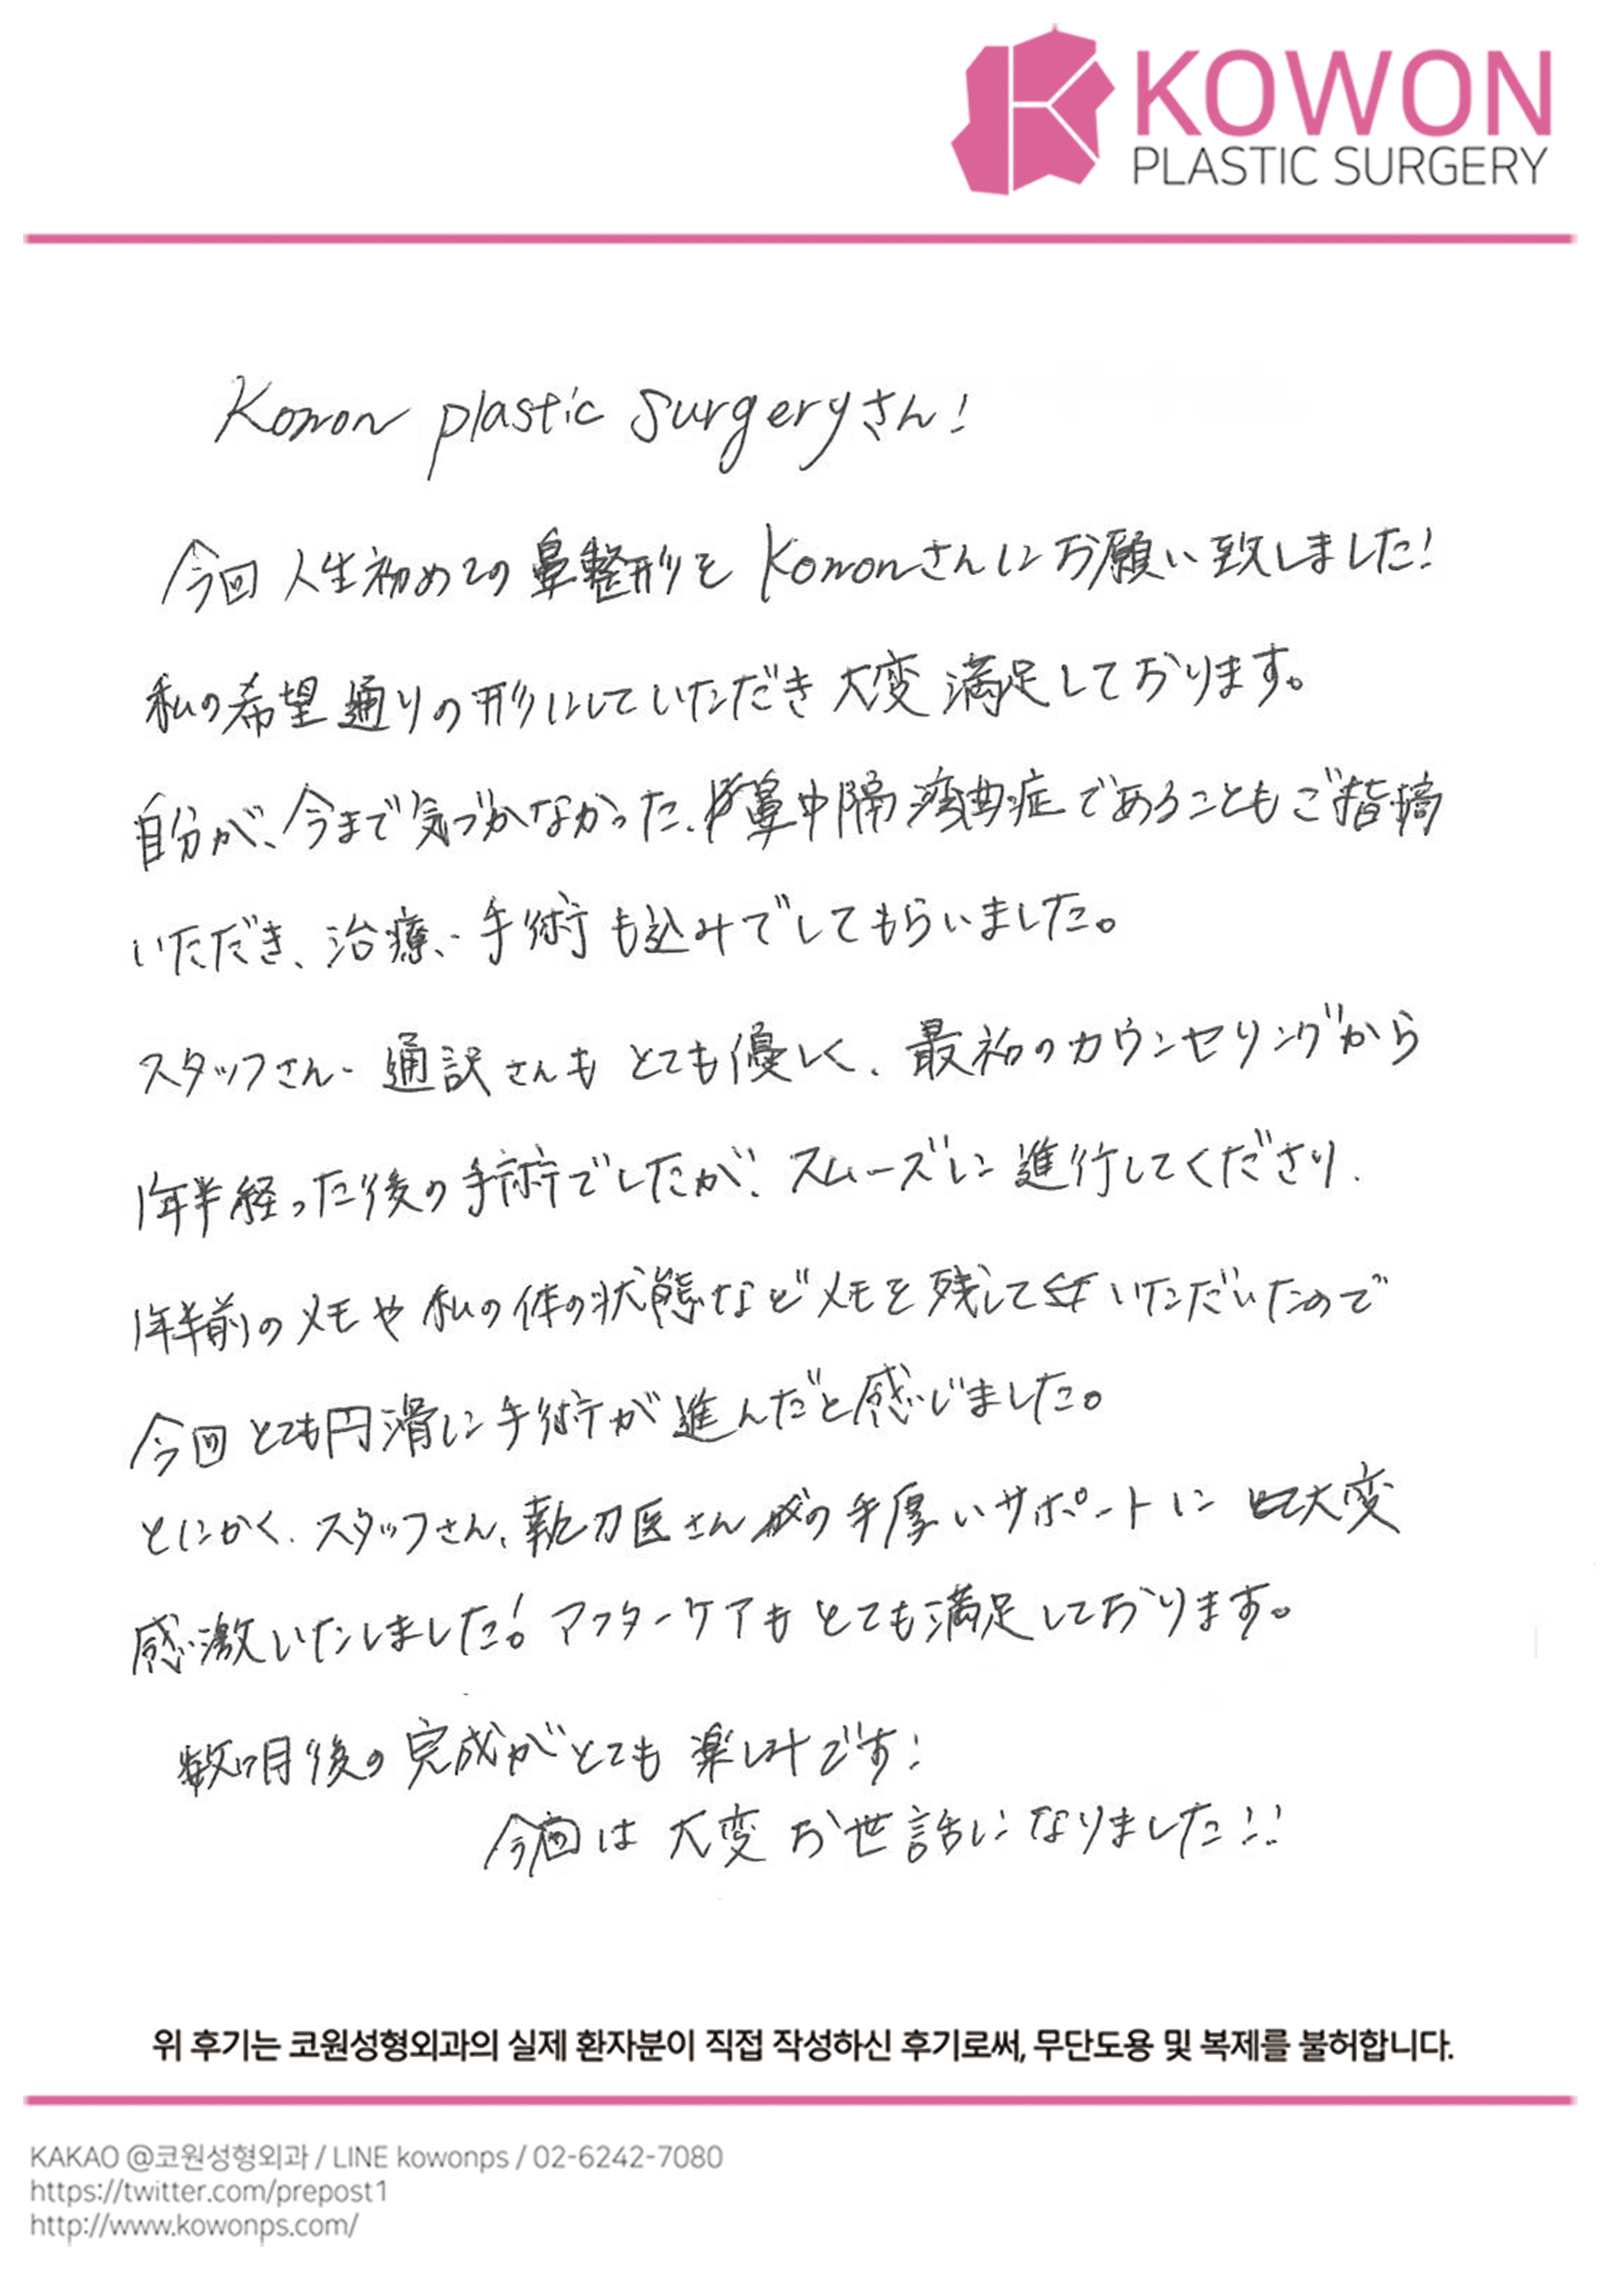 KOWON
PLASTIC SURGERY
Kowon plastic surgeryさん!
今回人生初めての鼻整形をKowonさんにお願い致しました!
私の希望通りの形にしていただき大変満足しております。
自分が、今まで気づかなかった、鼻中隔湾曲症であることもご指摘
いただき、治療、手術も込みでしてもらいました。
スタッフさん・通訳さんもとても優しく、最初のカウンセリングから
1年半経った後の手術でしたが、スムーズに進行してくださり、
1年半前のメモや私の体の状態などメモを残していただいたので
今回とても円滑に手術が進んだと感じました。
とにかく、スタッフさん、執刀医さんの手厚いサポートに大変
感激いたしました!アフターケアもとても満足しております。
数ヶ月後の完成がとても楽しみです!
今回は大変お世話になりました!!
위 후기는 코원성형외과의 실제 환자분이 직접 작성하신 후기로써, 무단도용 및 복제를 불허합니다.
KAKAO @코원성형외과 / LINE kowonps / 02-6242-7080
https://twitter.com/prepost1
http://www.kowonps.com/